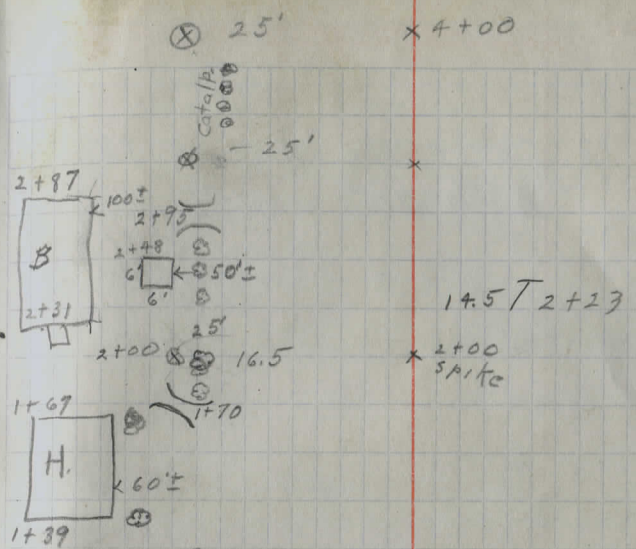 25' 4+00
Catalp.
25'
2+87
100±
2+95
2+48
B
6' 50'±
6'
2+31
14.5 T 2+23
25'
2+00 16.5 2+00
Spike
1+67
1+70
H.
60±
1+39